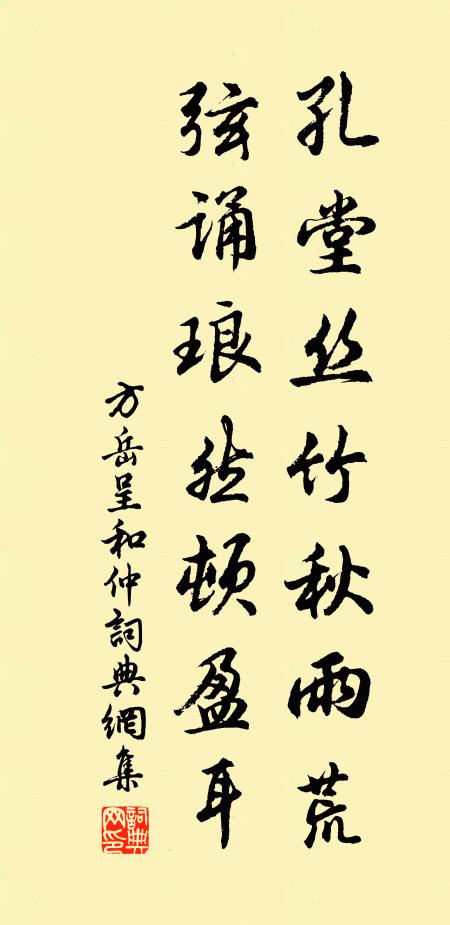 孔堂丝竹秋雨荒
弦诵琅然顿盈耳
方岳呈和仲詞典網集
詞典網印